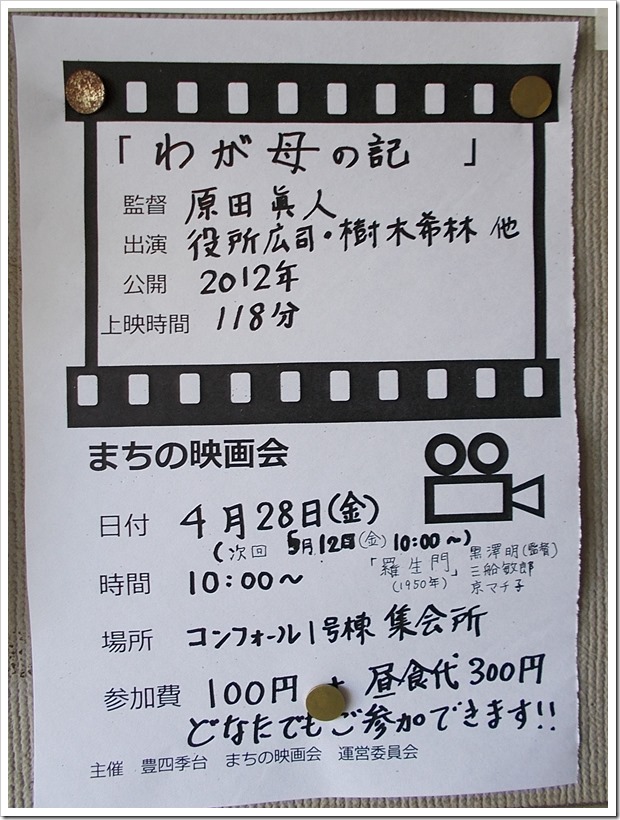 「わが母の記 」
監督 原田眞人
出演 役所広司・樹木希林 他
公開 2012年
上映時間 118分
まちの映画会
日付 4月28日(金)
(次回 5月12日(金) 10:00~)
「羅生門」 黒澤明(監督)
(1950年) 三船敏郎
京マチ子
時間 10:00~
場所 コンフォール1号棟 集会所
参加費 100円 + 昼食代300円
どなたでもご参加できます!!
主催 豊四季台 まちの映画会 運営委員会